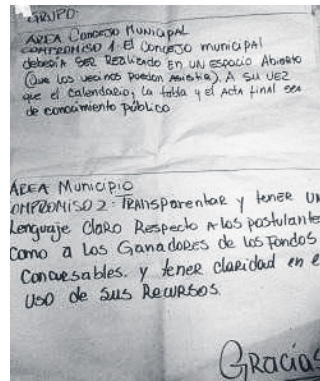 GRUPO:
AREA Concejo Municipal
COMPROMISO 1: El Concejo municipal
debería SER Realizado EN UN espacio Abierto
(Que los vecinos puedan Asistir). A SU VEZ
que el calendario, la tabla y el Acta final sea
de conocimiento público
ÁREA Municipio
OMPROMISO 2: TRANSparentar y tener UN
Lenguaje Claro Respecto A los postulante
Como a Los Ganadores de los Fondos
Concursables. y tener claridad en e
USO de SUS RECURSOS.
GRacias